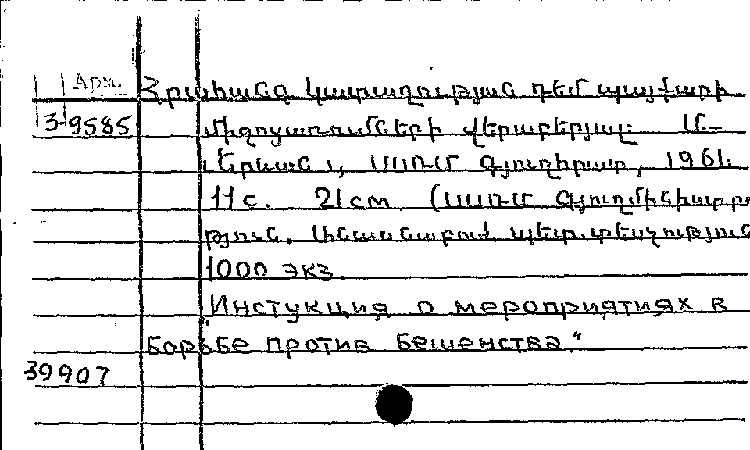 Арм.
Հրահանգ կատաղության դեմ պայքարի
3-9585 միջոցառումների վերաբերյալ:
Երևան, ՍՍՌՄ Գյուղհրատ, 1961.
11 с. 21 см (ՍՍՌՄ Գյուղմինիստրու
թյուն. Անասնաբուժ. պետ. տեսչություն
1000 экз.
"Инстукция о мероприятиях в
борьбе против бешенства"
39907